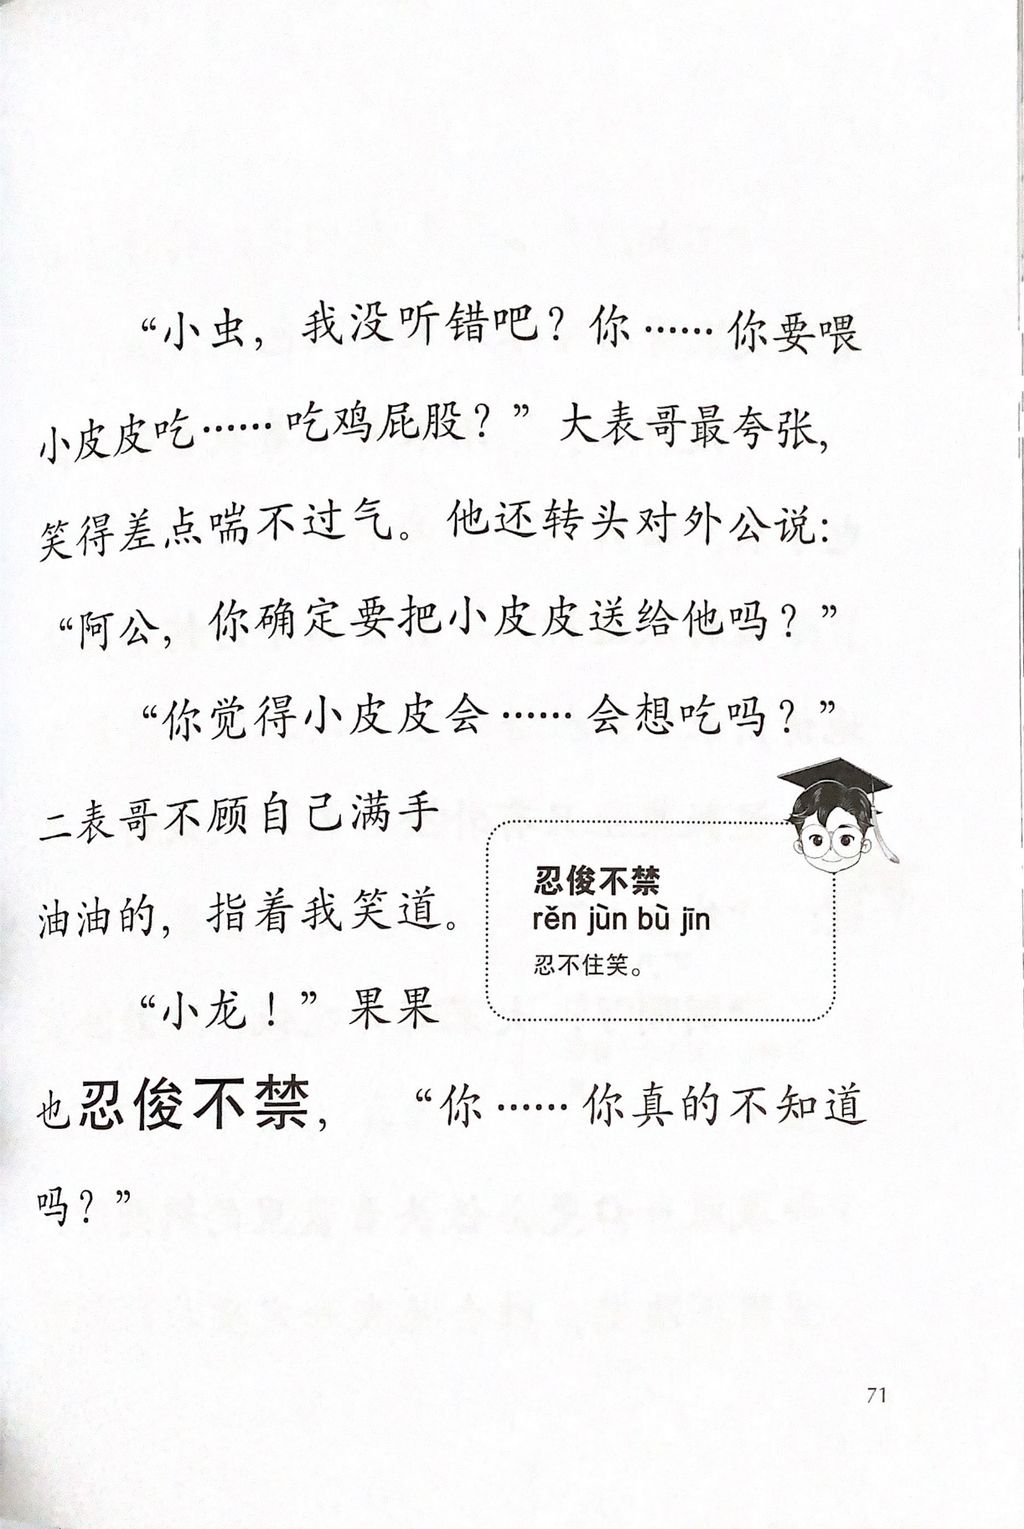 “小虫，我没听错吧？你……你要喂
小皮皮吃……吃鸡屁股？”大表哥最夸张，
笑得差点喘不过气。他还转头对外公说：
“阿公，你确定要把小皮皮送给他吗？”
“你觉得小皮皮会……会想吃吗？”
二表哥不顾自己满手
油油的，指着我笑道。
“小龙！”果果
也忍俊不禁，“你……你真的不知道
吗？”
忍俊不禁
rěn jùn bù jīn
忍不住笑。
71